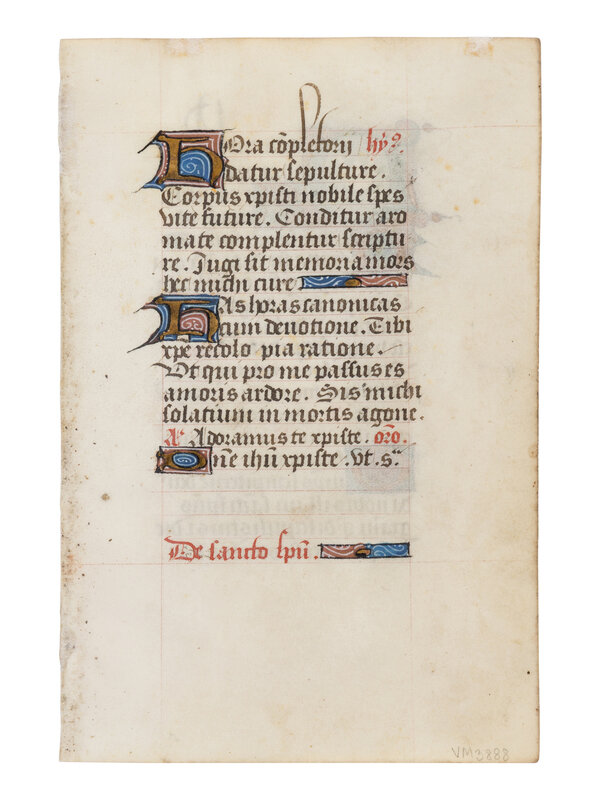 HOra cõpletorii hỹ9.
datur sepulture.
Corpus xpisti nobile spes
vite future. Conditur aro
mate complentur scriptu
re. Iugi sit memoria mors
hec michi cure
HAs horas canonicas
cum deuotione. Tibi
xpe recolo pia ratione.
Vt qui pro me passus es
amoris ardore. Sis michi
solatium in mortis agone.
A. Adoramus te xpiste. orõ.
Dñe ihũ xpiste. vt. s.
De sancto spũ.
VM3888